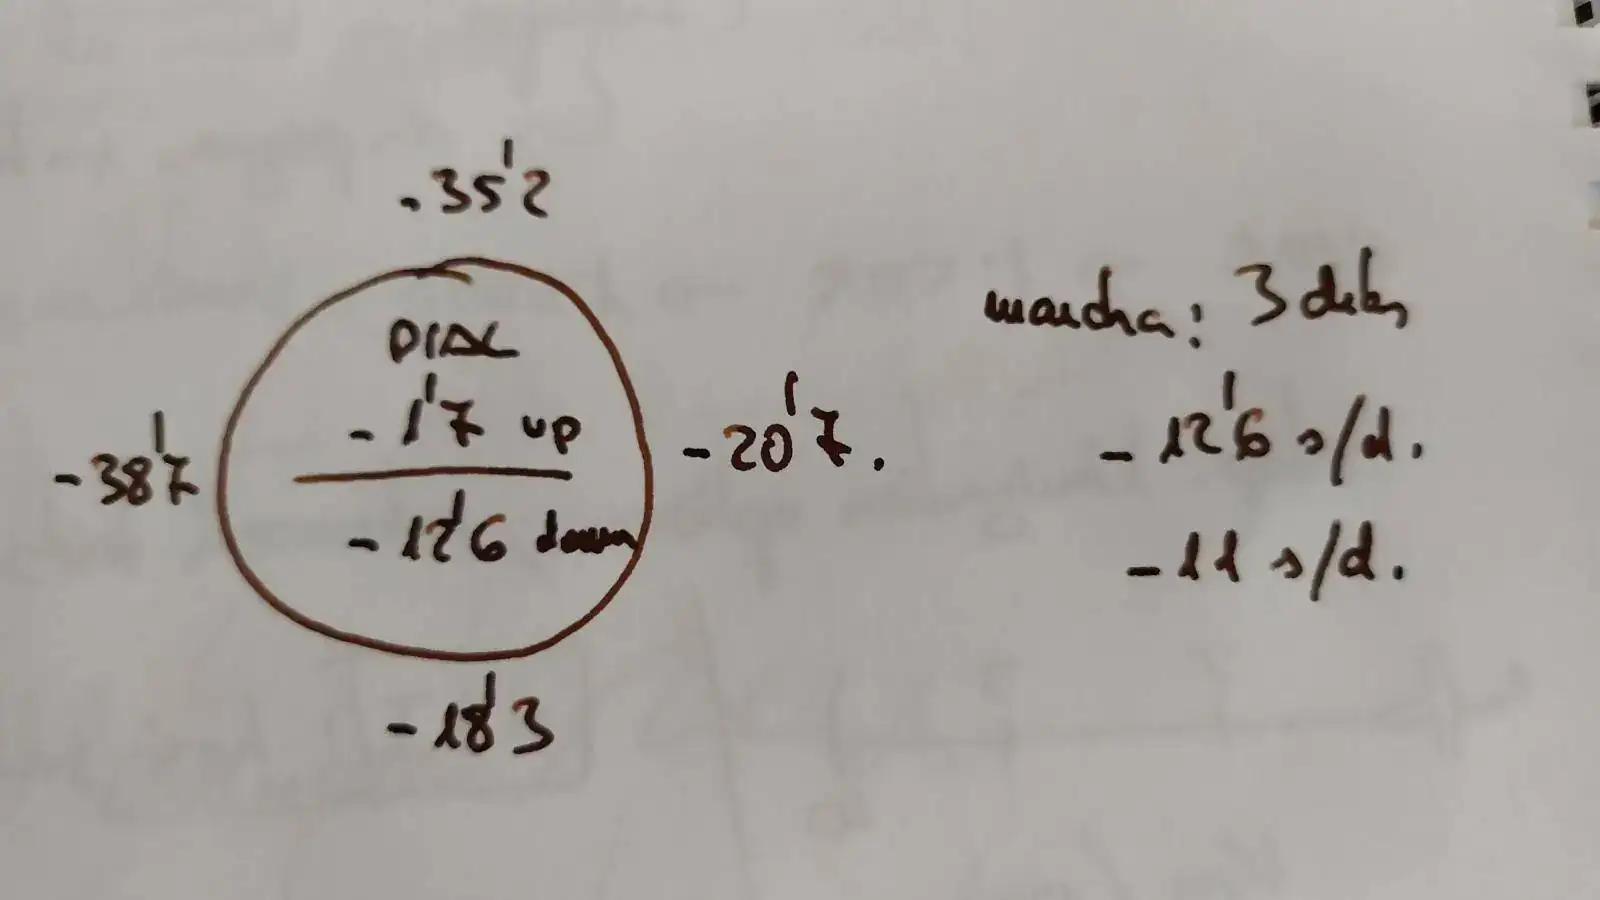 -35'2
DIAL
-1'7 up
-12'6 down
-38'7
-20'7.
-18'3
marcha: 3
-12'6 s/d.
-11 s/d.